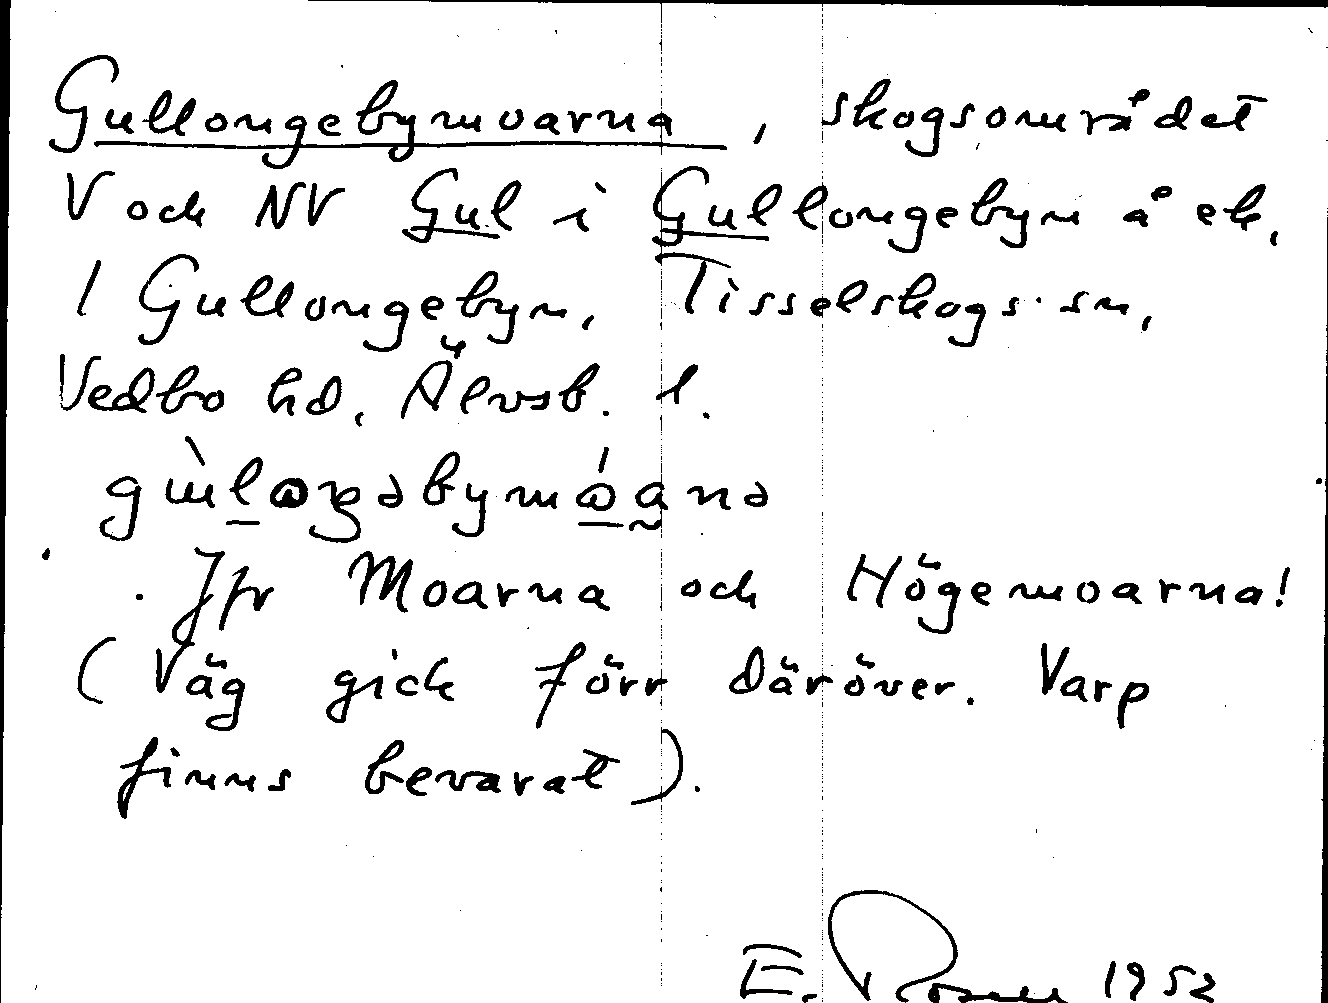 Gullongebymoarna, skogsområdet
V och NV Gul i Gullongebyn å ek.
1 Gullongebyn, Tisselskogs sn,
Vedbo hd, Älvsb. l.
Jfr Moarna och Högemoarna!
(Väg gick förr däröver. Varp
finns bevarat).
E. 1952